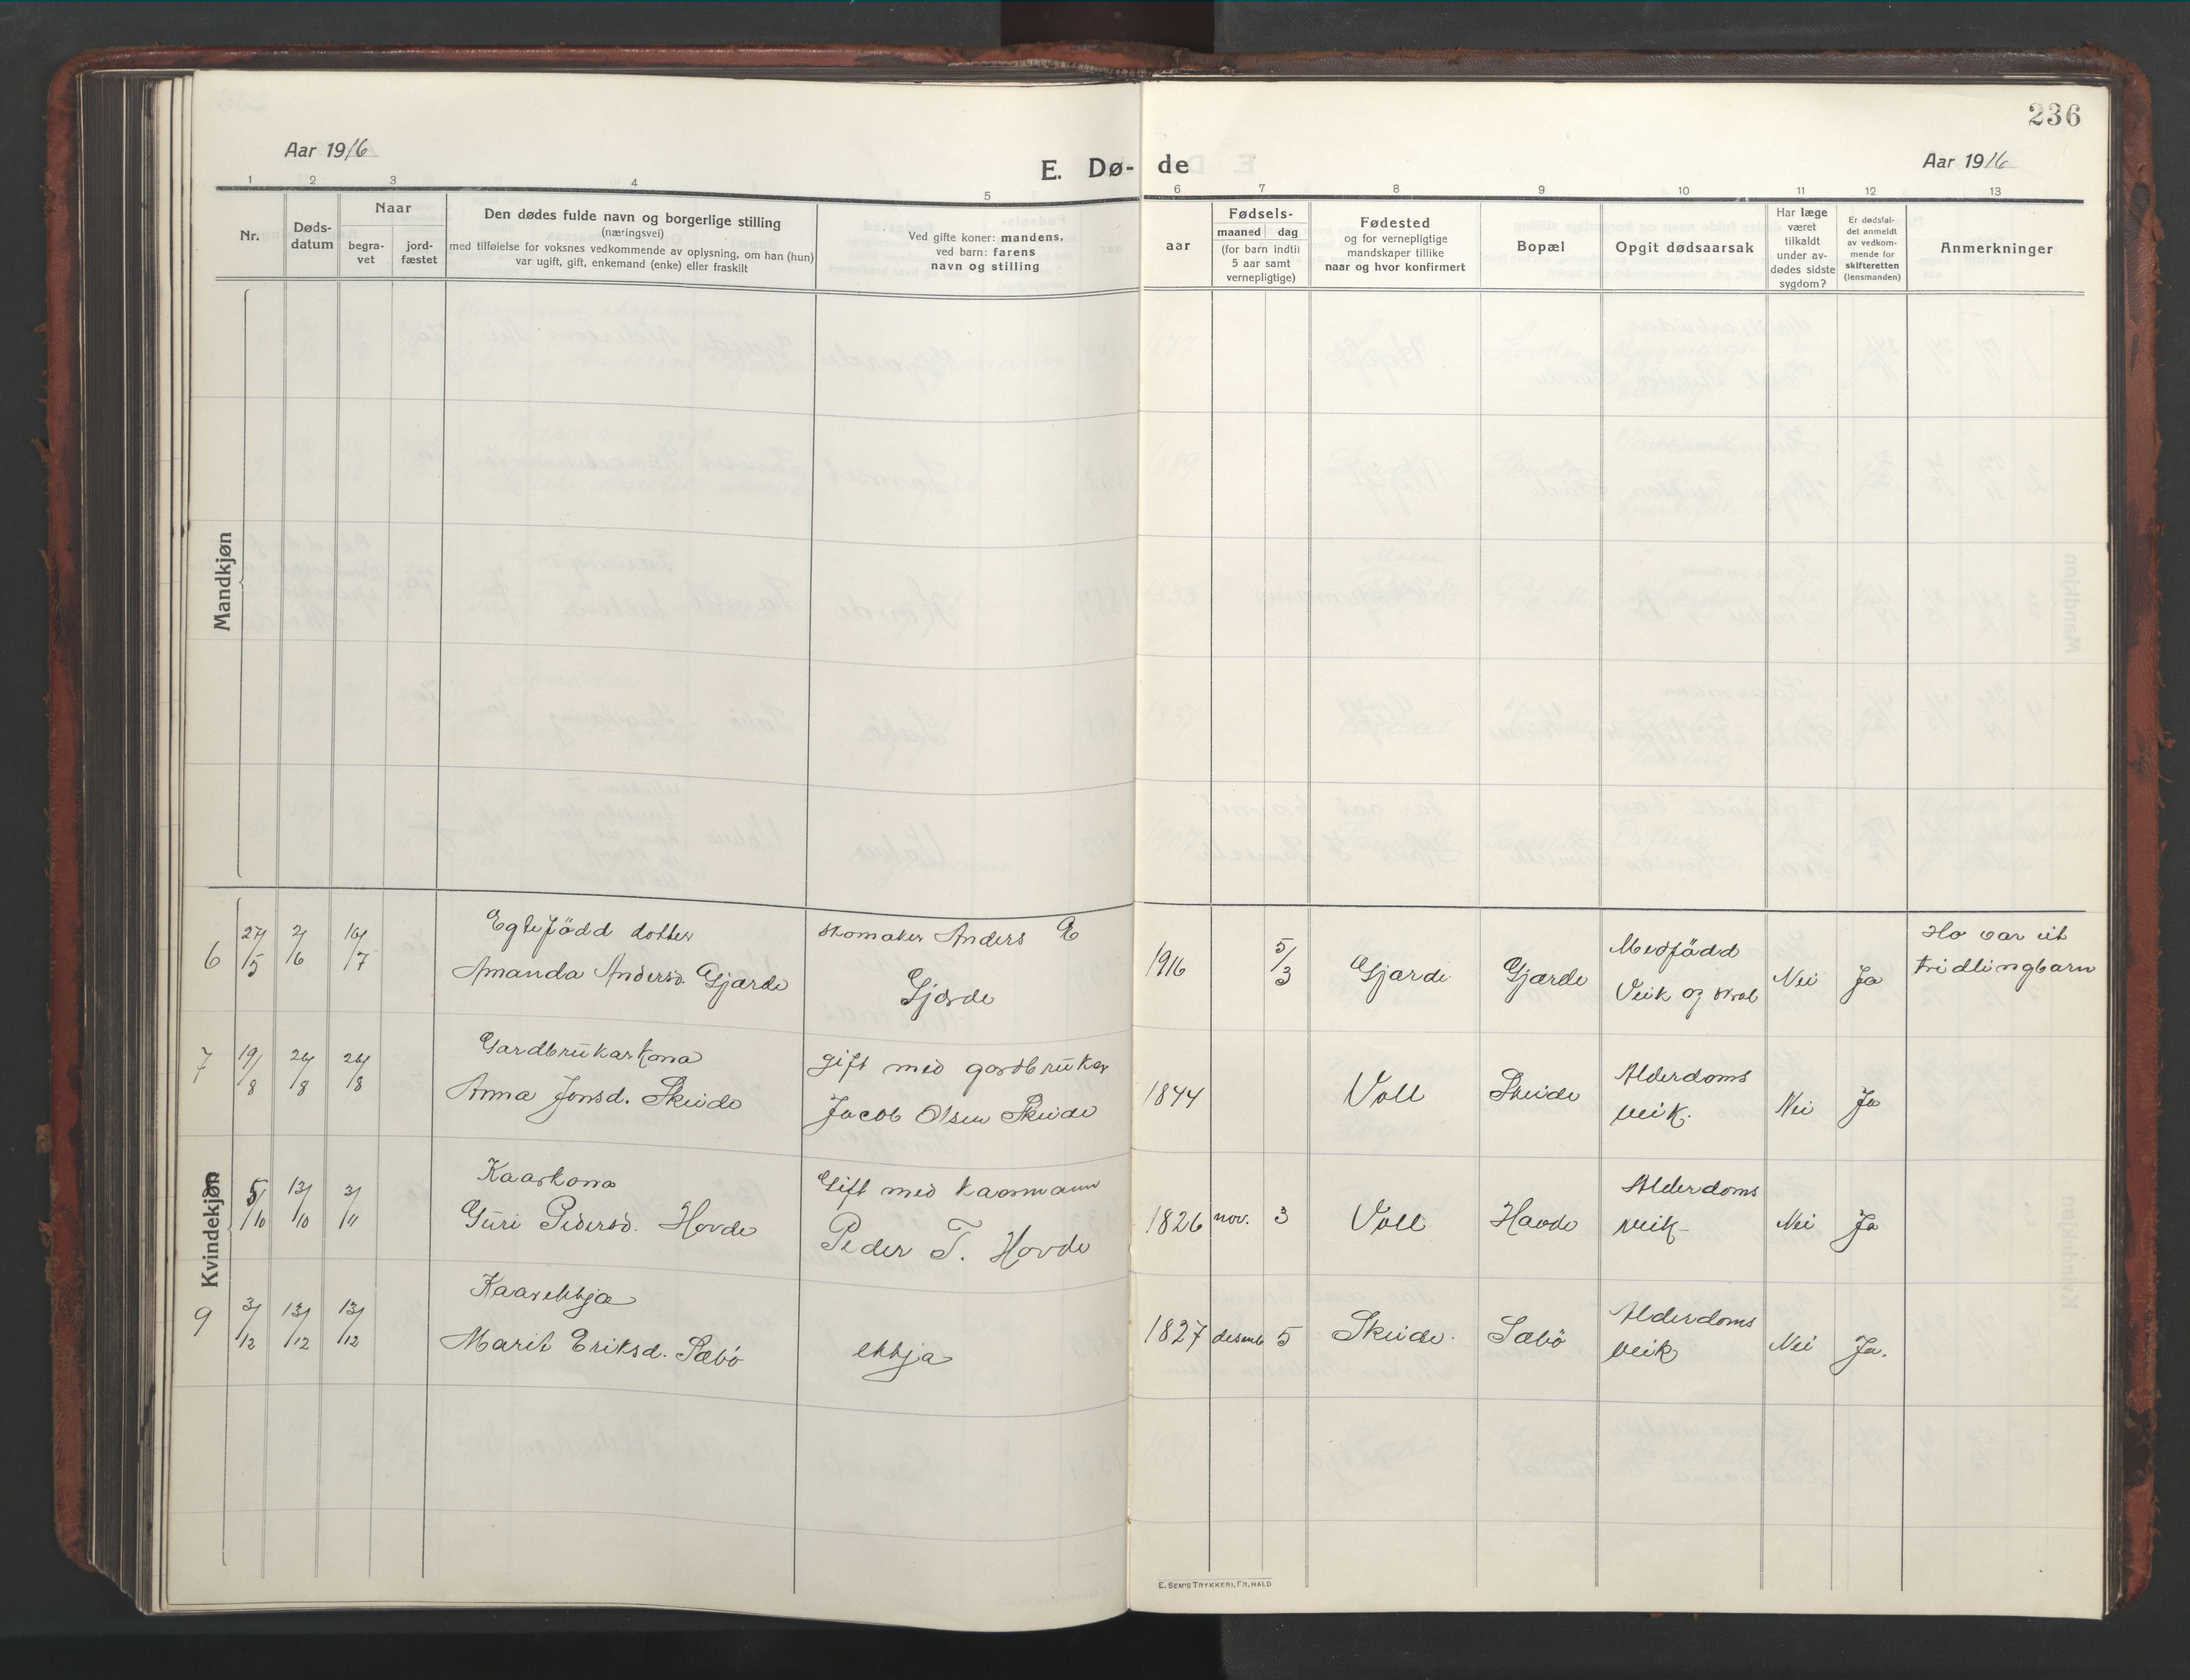 236
Aar 1916
E. Dø-
de
Aar 1916
1 2 3 4 5 6 7 8 9 10 11 12 13
Nr.
Døds-
datum
Naar
begra-
vet
jord-
fæstet
Den dødes fulde navn og borgerlige stilling
(næringsvei)
med tilføielse for voksnes vedkommende av oplysning, om han (hun)
var ugift, gift, enkemand (enke) eller fraskilt
Ved gifte koner: mandens,
ved barn: farens
navn og stilling
aar
Fødsels-
maaned dag
(for barn indtil
5 aar samt
vernepligtige)
Fødested
og for vernepligtige
mandskaper tillike
naar og hvor konfirmert
Bopæl
Opgit dødsaarsak
Har læge
været
tilkaldt
under av-
dødes sidste
sygdom?
Er dødsfal-
det anmeldt
av vedkom-
mende for
skifteretten
(lensmanden)
Anmerkninger
Mandkjøn
Kvindekjøn
6
27/5
2/6
16/7
Egtefödd dotter
Amanda Andersd. Gjærde
skomaker Anders
Gjærde
1916
5/3
Gjærde
Gjærde
Medfödd
Veik og
Nei
Ja
Ho var eit
tridlingbarn
7
19/8
24/8
24/8
Gardbrukarkona
Anna Jonsd. Skeide
gift med gardbrukar
Jacob Olsen Skeide
1844
Voll
Skeide
Alderdoms
veik.
Nei
Ja
5/10
13/10
3/11
Kaarkona
Guri Pedersd. Hovde
Gift med kaarmann
Peder T. Hovde
1826 nov. 3
Voll
Hovde
Alderdoms
veik
Nei
Ja
9
3/12
13/12
13/12
Kaarekkja
Marit Eriksd. Sæbö
ekkja
1827 desemb 5
Skeide.
Sæbö
Alderdoms
veik
Nei
Ja.
E. SEM'S TRYKKERI, FR.HALD